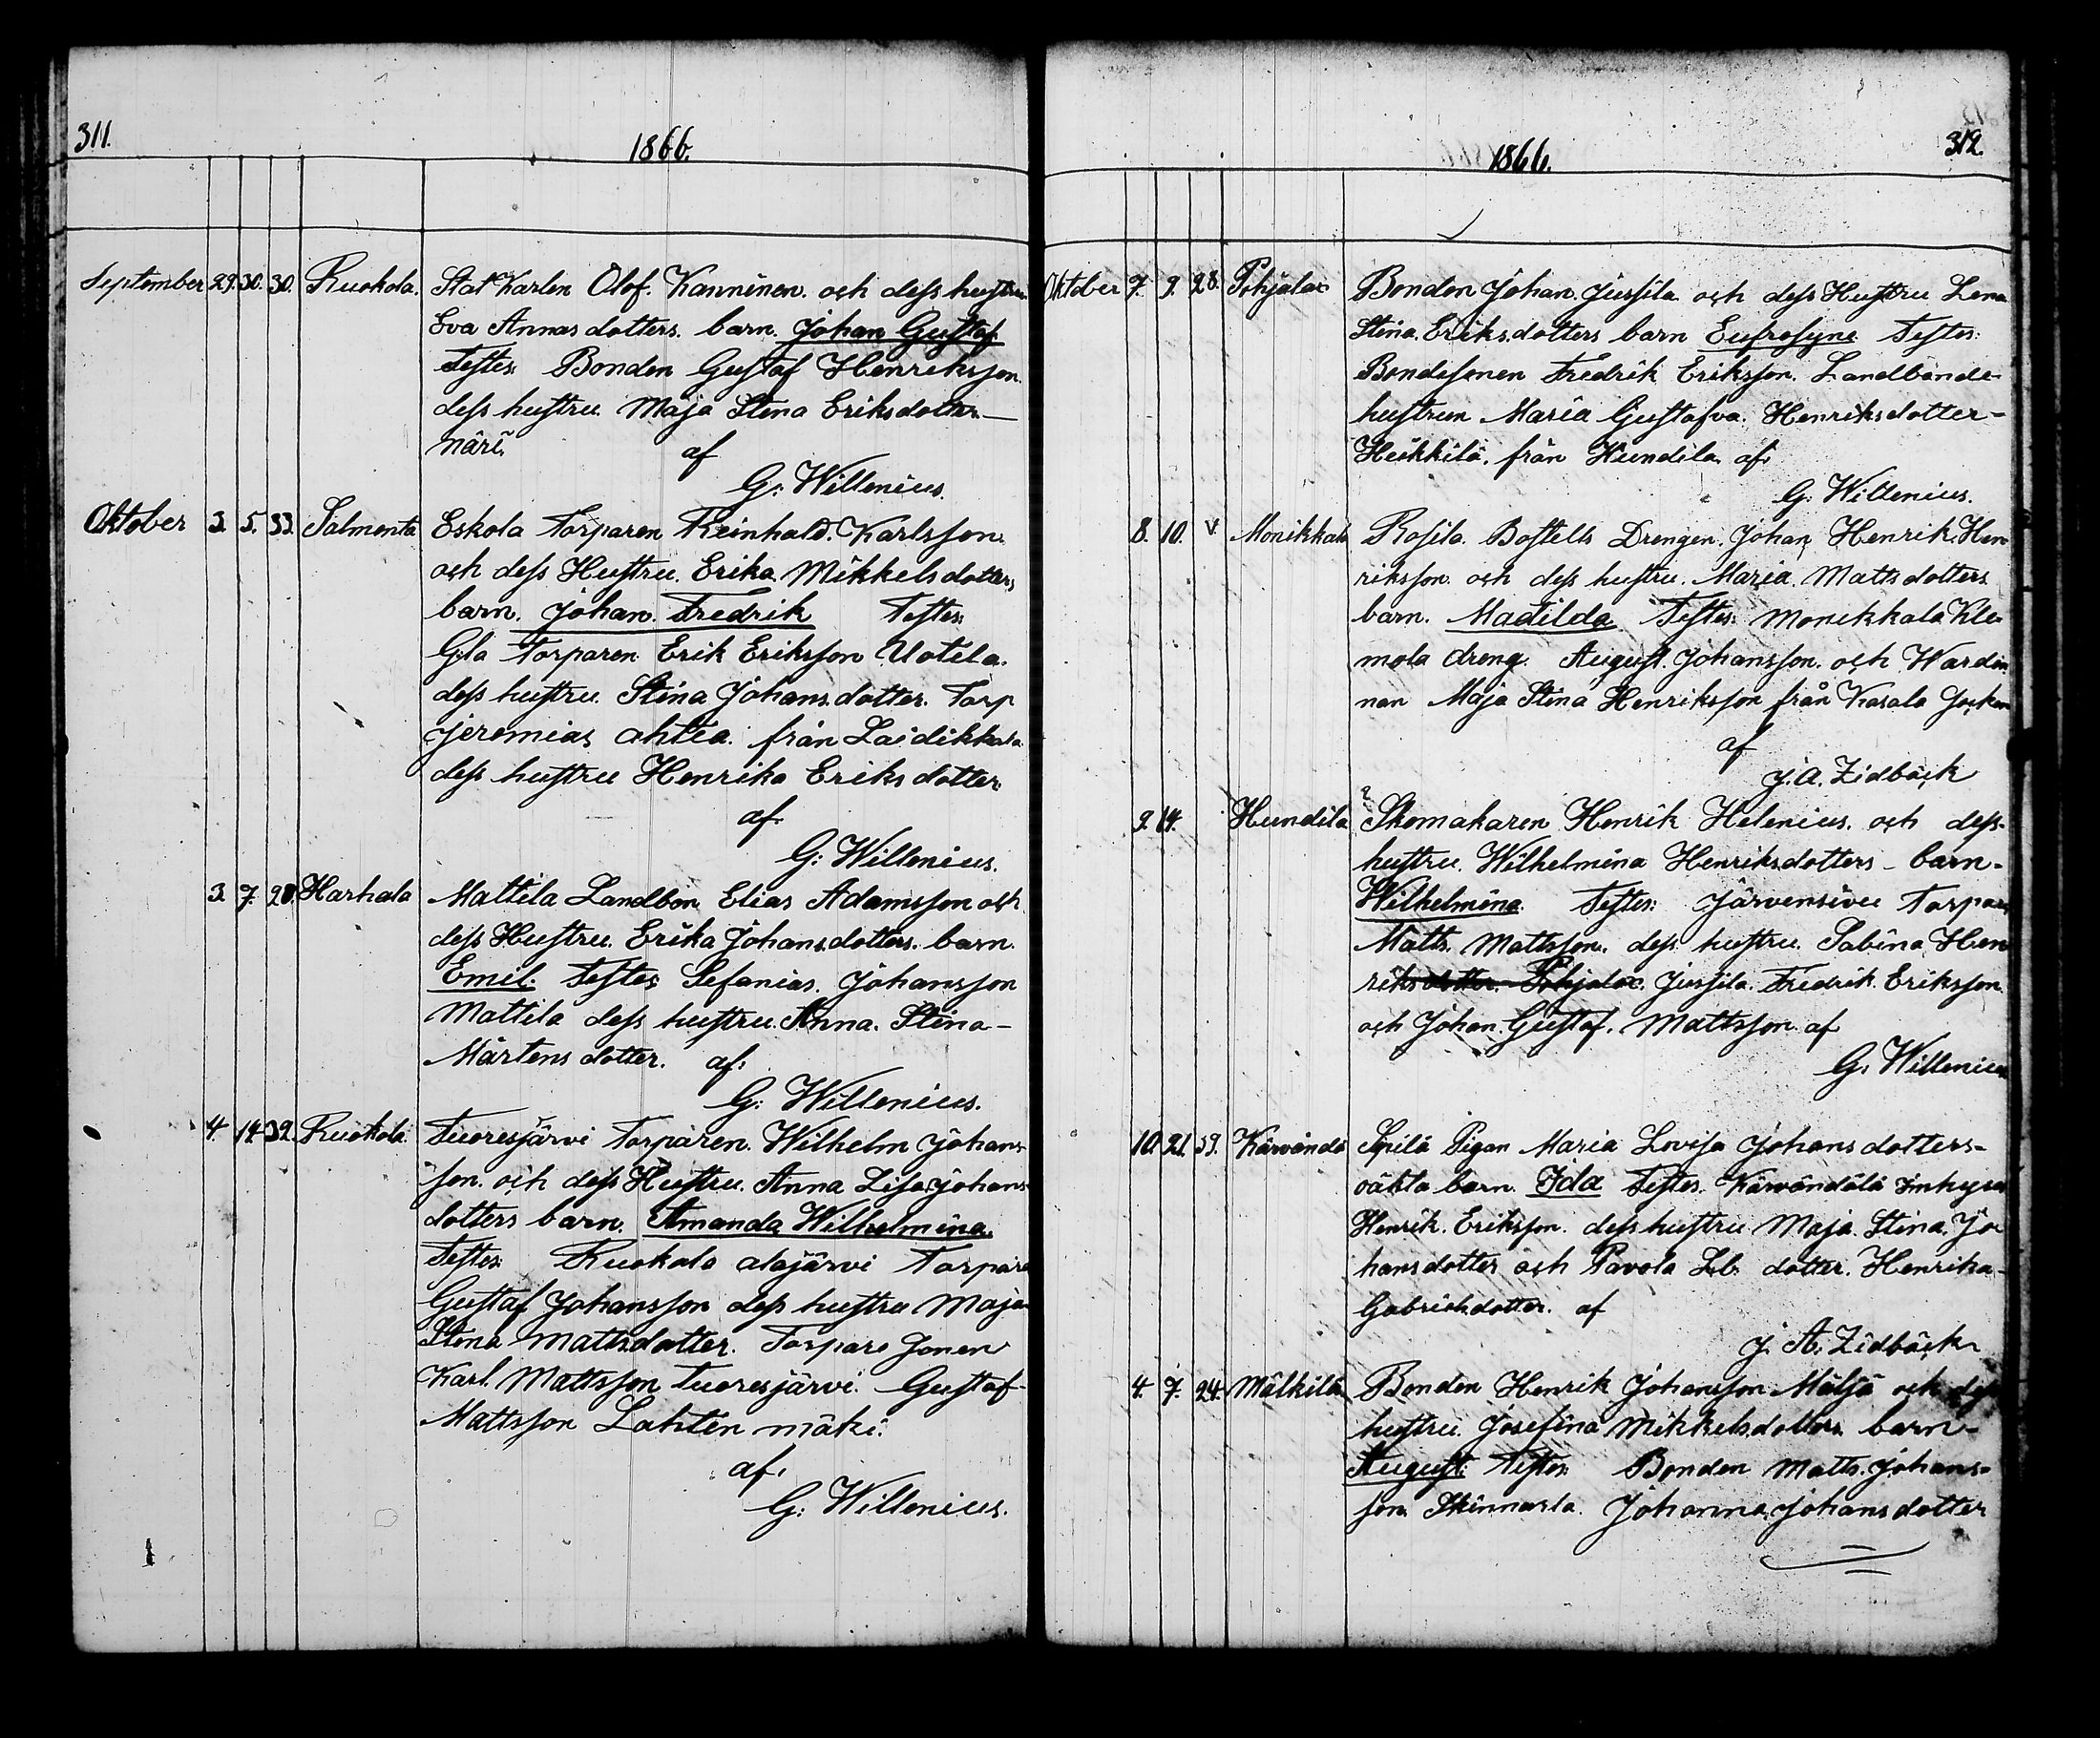 311.
1866.
September 29. 30. 30. Ruokola. Stat Karlen Olof. Kanninen. och dess hustru
Eva Annas dotters. barn. Johan Gustaf
Testes: Bonden Gustaf Henriksson
dess hustru Maja Stina Eriksdotter—
Näri. af
G: Willenius.
Oktober 3. 5. 33. Salmenta Eskola Torparen Reinhold. Karlsson.
och dess Hustru. Erika Mikkels dotters
barn. Johan. Fredrik Testes:
Gla Torparen Erik Eriksson Uotila.
dess hustru. Stina Johans dotter. Torp
Jeremias Ahtia. från Laidikkala
dess hustru Henrika Eriks dotter
af.
G: Willenius.
3. 7. 28. Harhala Mattila Landbon Elias Adamsson och
dess Hustru. Erika Johansdotters. barn.
Emil. Testes Sefanias. Johansson
Mattila dess hustru. Anna. Stina-
Mårtens dotter. af:
G: Willenius.
4. 14. 32. Ruokola. Tuoresjärvi Torparen. Wilhelm Johans-
son. och dess Hustru. Anna Lisa Johans
dotters barn. Amanda Wilhelmina.
Testes: Ruokola Alajärvi Torpare
Gustaf Johansson dess hustru Maja
Stina Mattsdotter. Torpare Sonen
Karl. Mattsson Tuoresjärvi. Gustaf-
Mattsson Lahtenmäki.
af.
G: Willenius.
312.
1866.
Oktober 7. 9. 28. Pohjala Bonden Johan. Jussila och dess Hustru Lena
Stina. Eriksdotters barn Eufrosyne Testes:
Bondesonen Fredrik Eriksson. Landbonde-
hustrun Maria Gustafva. Henriksdotter-
Heikkilä. från Hundila af.
G: Willenius.
8. 10. Monikkala Rosila. Bostells Drengen. Johan Henrik Hen
riksson och dess hustru. Maria. Matts dotters
barn. Matilda Testes: Monikkala Kle
mola dreng. August. Johansson. och Wardin
nan Maja Stina Henriksson från Kasala
af
J. A. Zidbäck
9. 14. Hundila Skomakaren Henrik Helenius. och dess.
hustru. Wilhelmina Henriksdotters - barn-
Wilhelmina. Testes: Järvensivu Torpare
Matts. Mattsson. dess hustru. Sabina Hen
riksdotter. Pohjala. Jussila. Fredrik. Eriksson.
och Johan. Gustaf. Mattsson. af
G. Willenius
10. 21. 39. Kärvändä Spilä Pigan Maria Lovisa Johans dotters-
oäkta barn. Ida Testes. Kärvändälä Inhyses
Henrik. Eriksson. dess hustru Maja. Stina. Jo
hans dotter och Pavola Lb. dotter. Henrika-
Gabrielsdotter. af
J. A. Zidbäck
4. 7. 24. Mälkilä Bonden Henrik Johansson Mälsä och dess
hustru. Josefina Mikkelsdotters barn-
August: Testes: Bonden Matts. Johans-
son. Skinnarla. Johanna Johans dotter